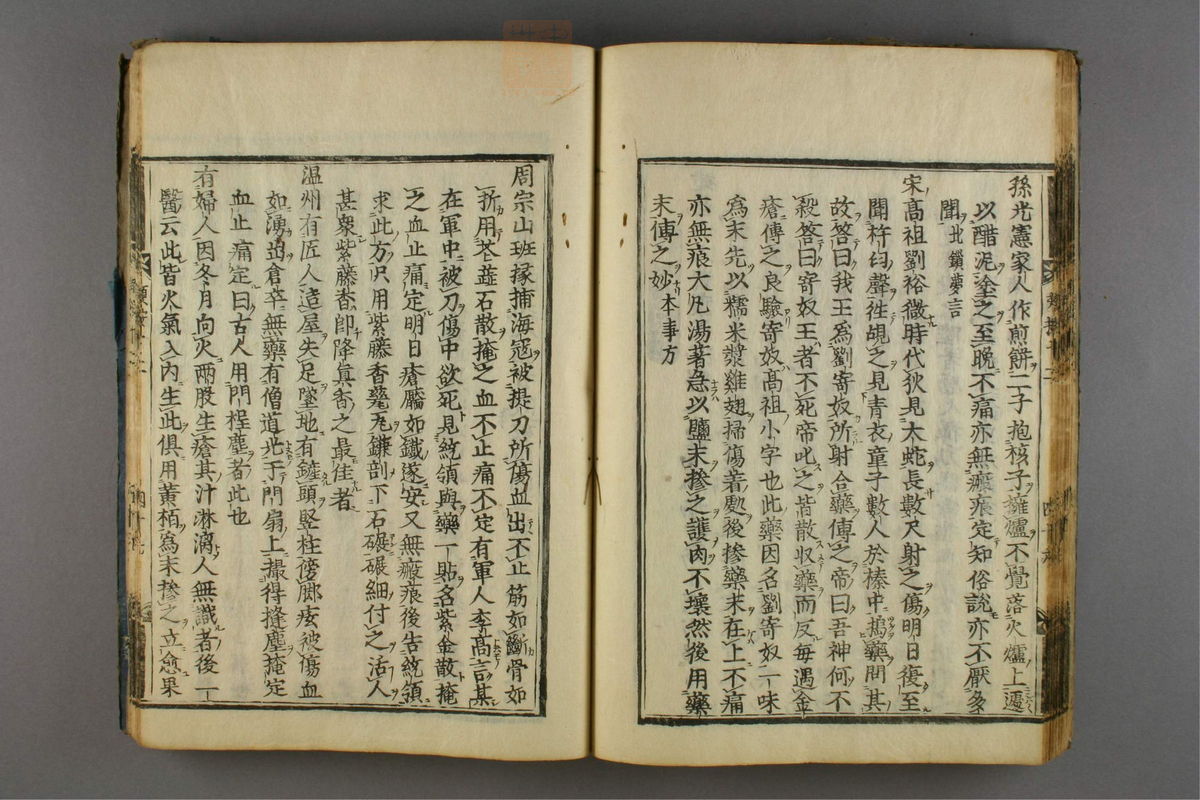 孫光憲家人作煎餅一子抱孩子擁爐不覺落火爐上遽
以醋泥塗之至曉不痛亦無瘢痕定知俗說亦不厭多
聞北鎖夢言
宋高祖劉裕微時伐狄見大蛇長數尺射之傷明日復至
聞杵臼聲徃覘之見青衣童子數人於榛中搗藥問其
故答曰我王爲劉寄奴所射合藥傳之帝曰吾神何不
殺答曰寄奴王者不死帝叱之皆散収藥而反每遇金
瘡傳之良驗寄奴髙祖小字也此藥因名劉寄奴一味
爲末先以糯米漿雞翅掃傷著處後摻藥末在上不痛
亦無痕大凡湯著急以鹽末摻之護肉不壞然後用藥
末傳之妙本事方
周宗山班掾捕海寇被提刀所傷血出不止筋如斷骨如
折用花蕋石散掩之血不止痛不定有軍人李髙言某
在軍中被刀傷中欲死見綂領與藥一貼名紫金散掩
之血止痛定明日瘡靨如鐵遂安又無瘢痕後告綂領
求此方只用紫藤香甆瓦鐮剖下石碾碾細付之活人
甚衆紫藤香即降眞香之最佳者
温州有匠人造屋失足墜地有鏟頭竪柱傍脚疾被傷血
如湧出倉卒無藥有僧道光于門扇上撮得𡏖塵掩定
血止痛定曰古人用門桯塵者此也
有婦人因冬月向火兩股生瘡其汁淋漓人無識者後一
醫云此皆火氣入内生此俱用黄栢爲末摻之立愈果